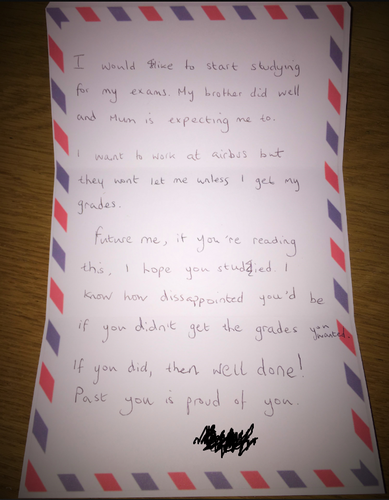 I would like to start studying
for my exams. My brother did well
and Mum is expecting me to.
I want to work at airbus but
they wont let me unless I get my
grades.
Future me, if you're reading
this, I hope you studied. I
know how dissappointed you'd be
if you didn't get the grades you wanted.
If you did, then well done!
Past you is proud of you.